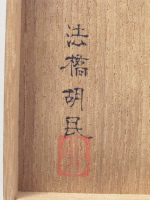 法橋胡民